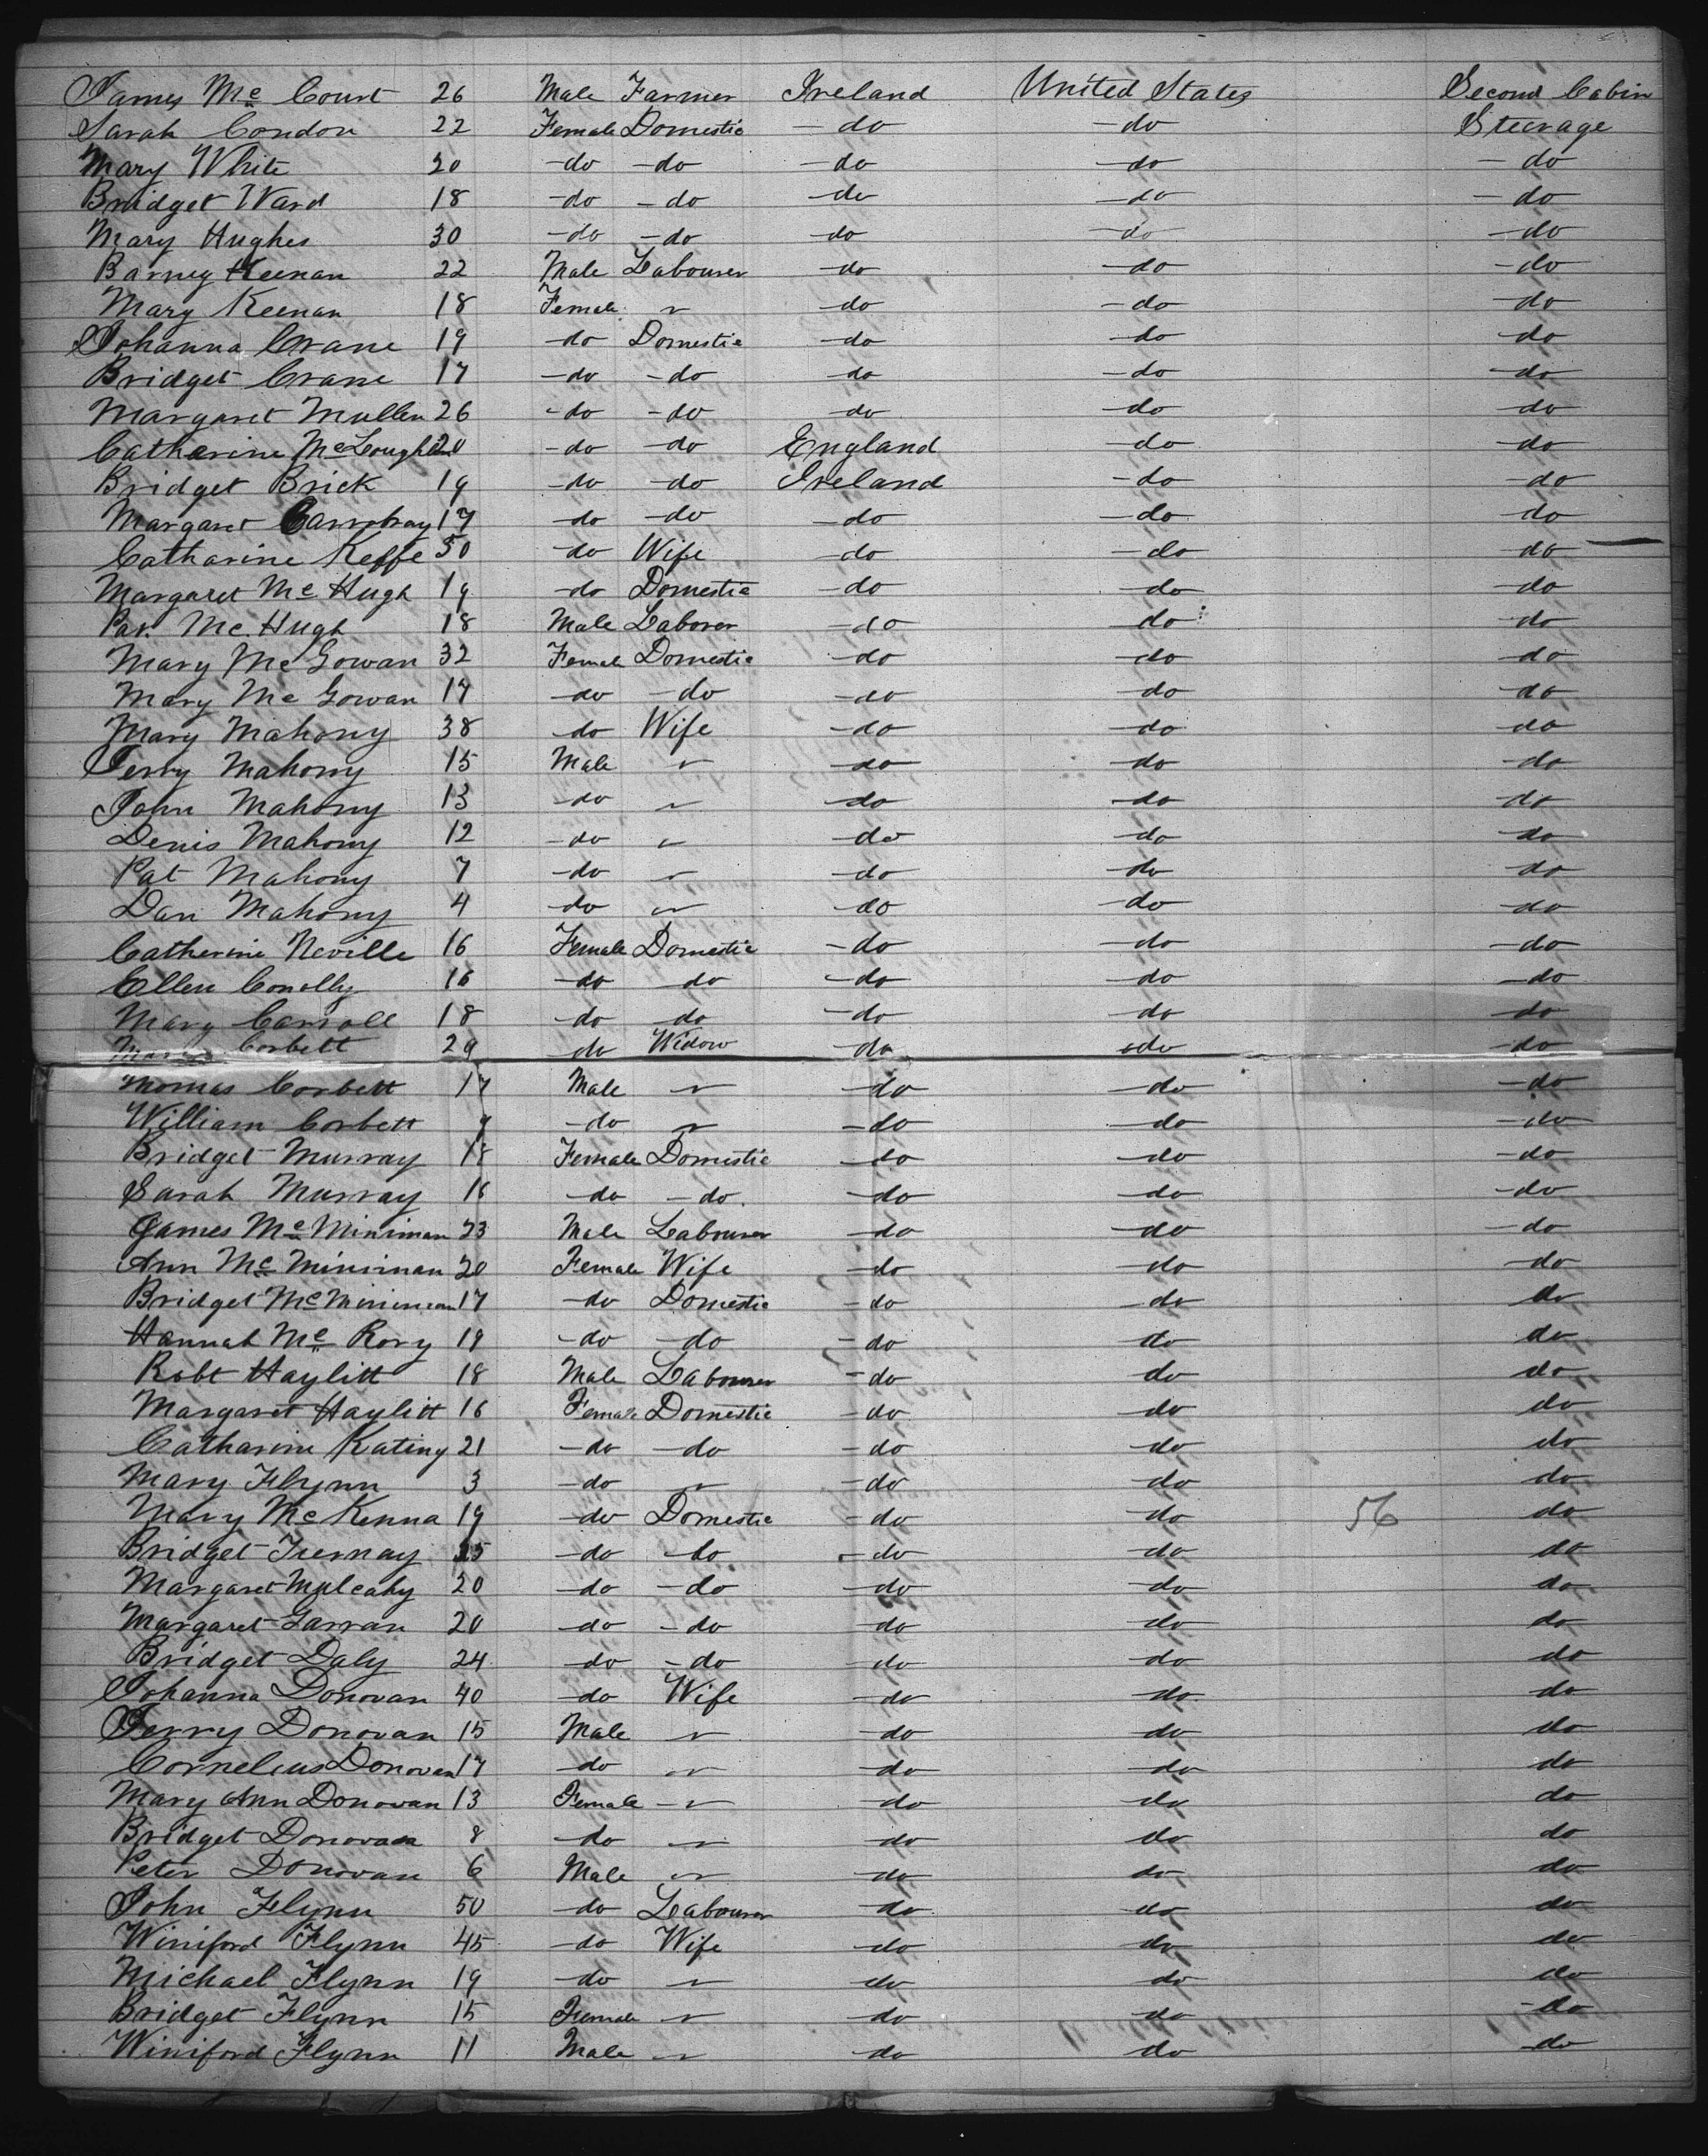 James Mc Court 26 Male Farmer Ireland United States Second Cabin
Sarah Condon 22 Female Domestic - do - do Steerage
Mary White 20 - do - do - do - do - do
Bridget Ward 18 - do - do - do - do - do
Mary Hughes 30 - do - do - do - do - do
Barney Keenan 22 Male Labourer - do - do - do
Mary Keenan 18 Female - do - do - do
Johanna Crane 19 - do Domestic - do - do - do
Bridget Crane 17 - do - do - do - do - do
Margaret Mullen 26 - do - do - do - do - do
Catharine McLoughlin 20 - do - do England - do - do
Bridget Brick 19 - do - do Ireland - do - do
Margaret 17 - do - do - do - do - do
Catharine Keffe 50 - do Wife - do - do - do
Margaret Mc Hugh 19 - do Domestic - do - do - do
Pat. Mc. Hugh 18 Male Laborer - do - do - do
Mary Mc Gowan 32 Female Domestic - do - do - do
Mary Mc Gowan 17 - do - do - do - do - do
Mary Mahony 38 - do Wife - do - do - do
Jerry Mahony 15 Male - do - do - do
John Mahony 13 - do - do - do - do
Denis Mahony 12 - do - do - do - do
Pat Mahony 7 - do - do - do - do
Dan Mahony 4 - do - do - do - do
Catherine Neville 16 Female Domestic - do - do - do
Ellen Conolly 16 - do do - do - do - do
Mary Carroll 18 - do do - do - do - do
Corbett 29 - do Widow - do - do - do
Thomas Corbett 17 Male - do - do - do
William Corbett 9 - do - do - do - do
Bridget Murray 18 Female Domestic - do - do - do
Sarah Murray 16 - do - do - do - do - do
James Mc Miniman 23 Male Labourer - do - do - do
Ann Mc Miniman 20 Female Wife - do - do - do
Bridget Mc Miniman 17 - do Domestic - do - do do
Hannah Mc Rory 19 - do - do - do - do do
Robt Haylitt 18 Male Labourer - do - do do
Margaret Haylitt 16 Female Domestic - do - do do
Catharine Kating 21 - do - do - do - do do
Mary Flynn 3 - do - do - do do
Mary Mc Kenna 19 - do Domestic - do - do 56 do
Bridget Tiernay - do - do - do - do do
Margaret Mulcahy 20 - do - do - do - do do
Margaret Garran 20 - do - do - do - do do
Bridget Daly 24 - do - do - do - do do
Johanna Donovan 40 - do Wife - do - do do
Jerry Donovan 15 Male - do - do do
Cornelius Donovan 17 - do - do - do do
Mary Ann Donovan 13 Female - do - do do
Bridget Donovan 8 - do - do - do do
Peter Donovan 6 Male - do - do do
John Flynn 50 - do Labourer - do - do do
Winiford Flynn 45 - do Wife - do - do do
Michael Flynn 19 - do - do - do do
Bridget Flynn 15 Female - do - do - do
Winiford Flynn 11 Male - do - do - do